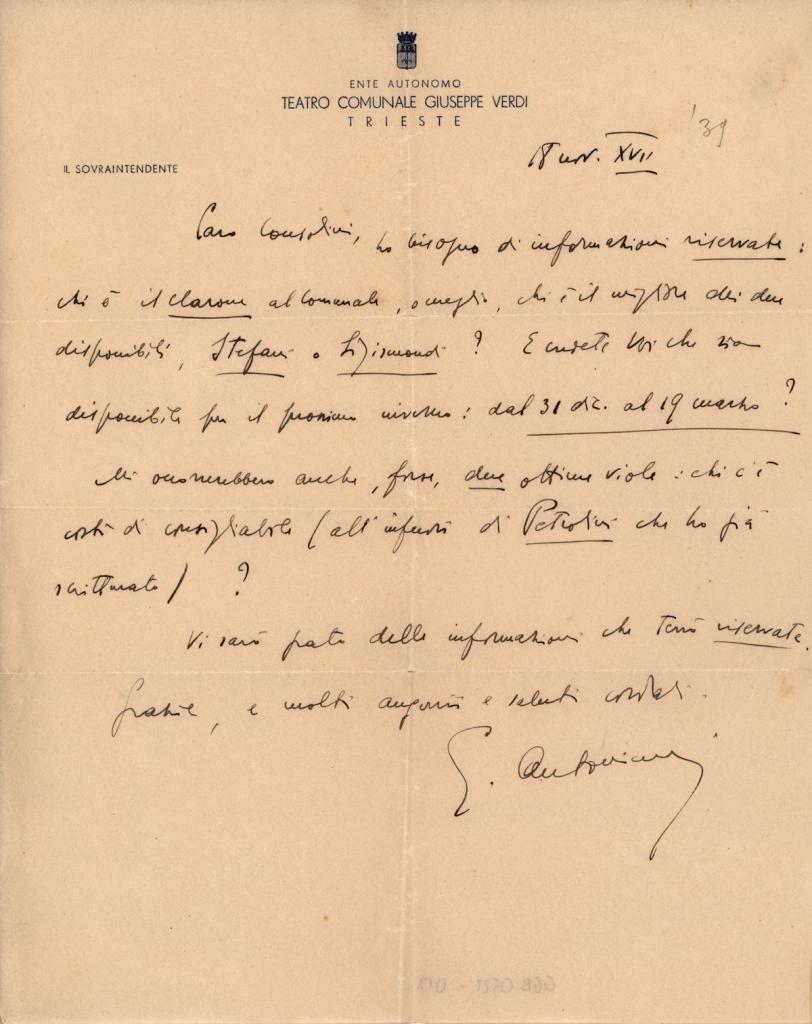 ENTE AUTONOMO
TEATRO COMUNALE GIUSEPPE VERDI
TRIESTE
'39
IL SOVRAINTENDENTE
nov. XVII
Caro Consolini, ho bisogno di informazioni riservate:
chi è il clarone al Comunale, o meglio, chi è il migliore dei due
disponibili, Stefani o Sigismondi? E credete Voi che sia
disponibile per il prossimo inverno: dal 31 dic. al 19 marzo?
Mi occorrerebbero anche, forse, due ottime viole: chi c'è
costì di consigliabile (all'infuori di Petrolini che ho già
scritturato)?
Vi sarò grato delle informazioni che terrò riservate.
Grazie, e molti auguri e saluti cordiali.
G. Antonicelli